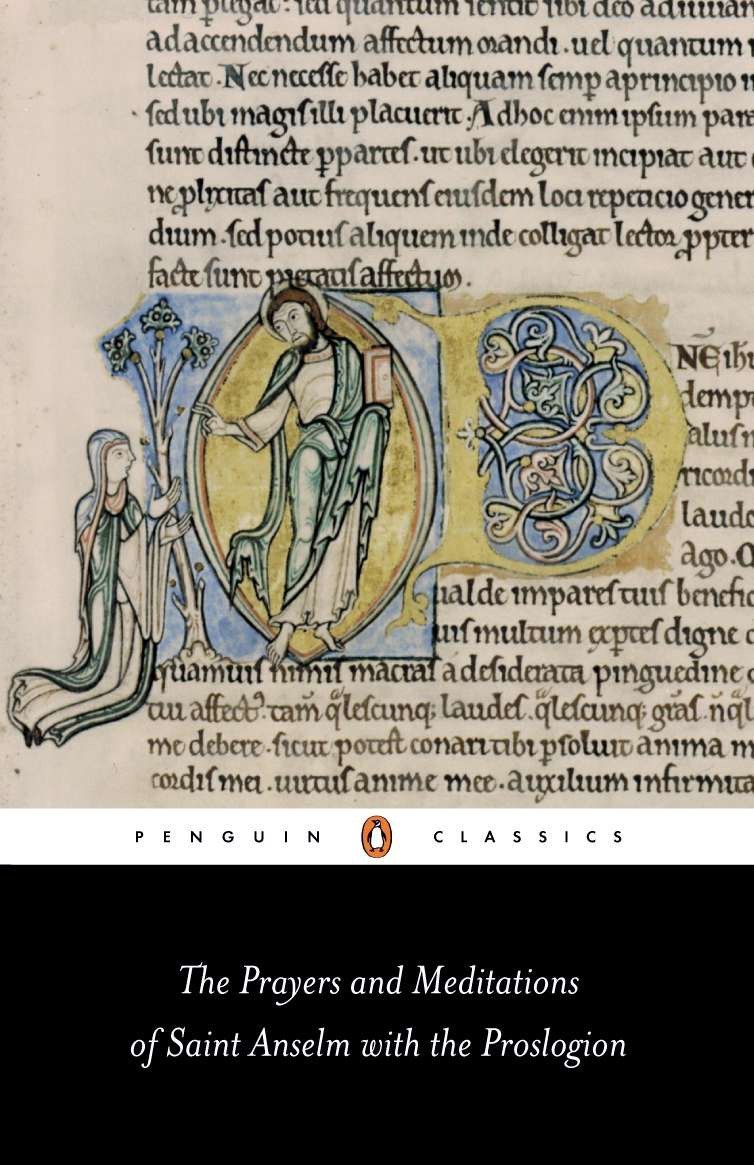 quantum sentit sibi deo
ad accendendum affectum orandi . uel quantum
lectat . Nec necesse habet aliquam semꝑ a principio
sed ubi magiſ illi placuerit . Ad hoc enim ipsum para
ſunt diſtincte ꝑ parteſ . ut ubi elegerit incipiat aut
ne ꝓlixitaſ aut frequenſ eiuſdem loci repeticio gener
dium . ſed potiuſ aliquem inde colligat lector ꝓpter
facte ſunt pietatiſ affectum .
D
NE ihu
dempt
aluſ
ricordi
laudo
ago . Q
ualde impareſ tuiſ benefic
uiſ multum exꝑteſ digne
quamuiſ nimiſ macraſ a deſiderata pinguedine
tui affectꝰ . tam q̈leſcunq; laudeſ . q̈leſcunq; gr̄aſ .
me debere . ſicut poteſt conari tibi ꝑſoluit anima m
cordiſ mei . uirtuſ anime mee . auxilium infirmita
PENGUIN CLASSICS
The Prayers and Meditations
of Saint Anselm with the Proslogion